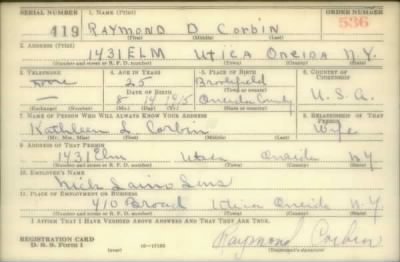 SERIAL NUMBER 1. NAME (Print) ORDER NUMBER
419 RAYMOND D CORBIN 536
(First) (Middle) (Last)
2. ADDRESS (Print)
1431 ELM UTICA ONEIDA N.Y.
(Number and street or R. F. D. number) (Town) (County) (State)
3. TELEPHONE 4. AGE IN YEARS 5. PLACE OF BIRTH 6. COUNTRY OF CITIZENSHIP
None 25 Brookfield
DATE OF BIRTH (Town or county)
— 8 14 1915 Oneida County U.S.A.
(Exchange) (Number) (Mo.) (Day) (Yr.) (State or country)
7. NAME OF PERSON WHO WILL ALWAYS KNOW YOUR ADDRESS 8. RELATIONSHIP OF THAT PERSON
Kathleen L Corbin Wife
(Mr., Mrs., Miss) (First) (Middle) (Last)
9. ADDRESS OF THAT PERSON
1431 Elm Utica Oneida NY
(Number and street or R. F. D. number) (Town) (County) (State)
10. EMPLOYER'S NAME
Nick Laino
11. PLACE OF EMPLOYMENT OR BUSINESS
410 Broad Utica Oneida N.Y.
(Number and street or R. F. D. number) (Town) (County) (State)
I AFFIRM THAT I HAVE VERIFIED ABOVE ANSWERS AND THAT THEY ARE TRUE.
REGISTRATION CARD
D. S. S. Form 1 (over) 16—17105
Raymond Corbin
(Registrant's signature)